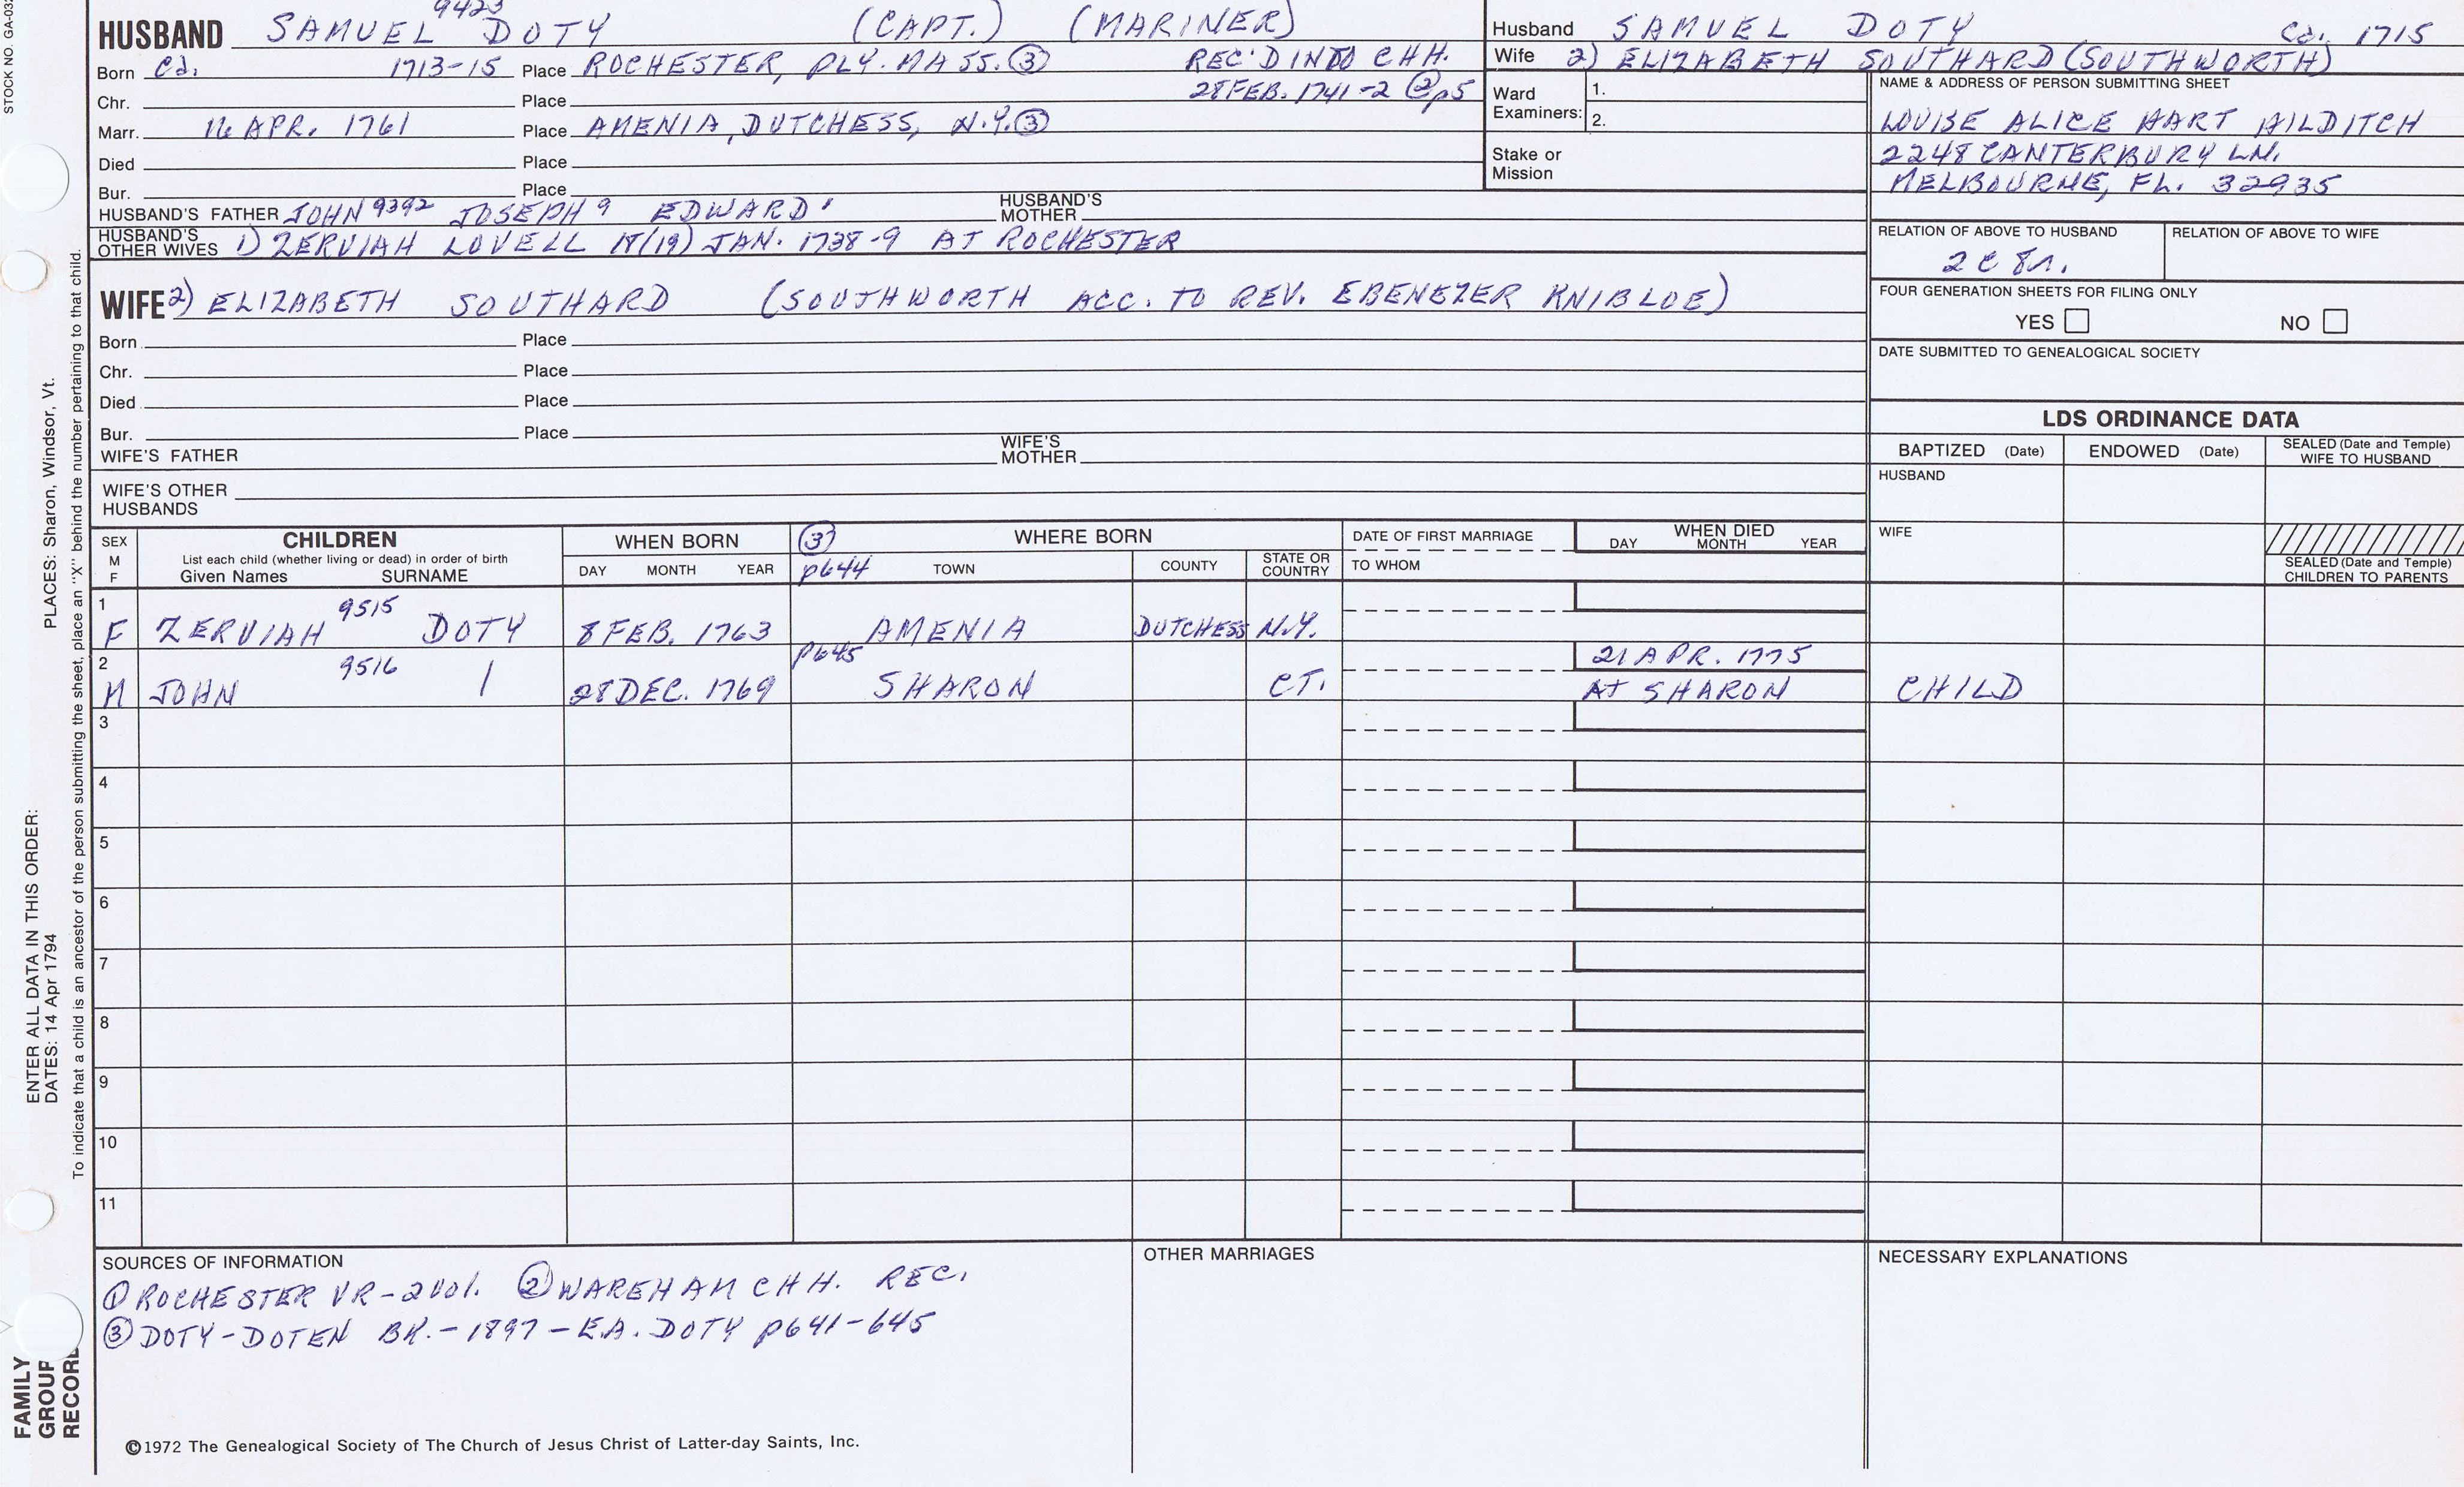 STOCK NO. GA-03
9423
HUSBAND SAMUEL DOTY (CAPT.) (MARINER)
Born Ca. 1713-15 Place ROCHESTER, PLY. MASS. ③ REC'D INTO CHH.
Chr. Place 28 FEB. 1741-2 ② p5
Marr. 16 APR. 1761 Place AMENIA, DUTCHESS, N.Y. ③
Died Place
Bur. Place
HUSBAND'S FATHER JOHN 9392 JOSEPH 9 EDWARD' HUSBAND'S MOTHER
HUSBAND'S OTHER WIVES 1) ZERVIAH LOVELL 18(19) JAN. 1738-9 AT ROCHESTER
WIFE 2) ELIZABETH SOUTHARD (SOUTHWORTH ACC. TO REV. EBENEZER KNIBLOE)
Born Place
Chr. Place
Died Place
Bur. Place
WIFE'S FATHER WIFE'S MOTHER
WIFE'S OTHER HUSBANDS
Husband SAMUEL DOTY Ca. 1715
Wife 2) ELIZABETH SOUTHARD (SOUTHWORTH)
Ward Examiners: 1.
2.
Stake or Mission
NAME & ADDRESS OF PERSON SUBMITTING SHEET
LOUISE ALICE HART HILDITCH
2248 CANTERBURY LN.
MELBOURNE, FL. 32935
RELATION OF ABOVE TO HUSBAND RELATION OF ABOVE TO WIFE
2C 8r.
FOUR GENERATION SHEETS FOR FILING ONLY
YES NO
DATE SUBMITTED TO GENEALOGICAL SOCIETY
LDS ORDINANCE DATA
BAPTIZED (Date) ENDOWED (Date) SEALED (Date and Temple) WIFE TO HUSBAND
HUSBAND
WIFE
SEALED (Date and Temple) CHILDREN TO PARENTS
SEX M F
CHILDREN
List each child (whether living or dead) in order of birth
Given Names SURNAME
WHEN BORN
DAY MONTH YEAR
③ p644
WHERE BORN
TOWN COUNTY STATE OR COUNTRY
DATE OF FIRST MARRIAGE
TO WHOM
WHEN DIED
DAY MONTH YEAR
1 F ZERVIAH 9515 DOTY 8 FEB. 1763 AMENIA DUTCHESS N.Y.
2 M JOHN 9516 / 28 DEC. 1769 p645 SHARON CT. 21 APR. 1775 AT SHARON CHILD
3
4
5
6
7
8
9
10
11
SOURCES OF INFORMATION
① ROCHESTER VR-2 Vol. ② WAREHAM CHH. REC.
③ DOTY-DOTEN BK.-1897-E.A. DOTY p641-645
OTHER MARRIAGES
NECESSARY EXPLANATIONS
©1972 The Genealogical Society of The Church of Jesus Christ of Latter-day Saints, Inc.
ENTER ALL DATA IN THIS ORDER:
DATES: 14 Apr 1794 PLACES: Sharon, Windsor, Vt.
To indicate that a child is an ancestor of the person submitting the sheet, place an "X" behind the number pertaining to that child.
FAMILY
GROUP
RECORD